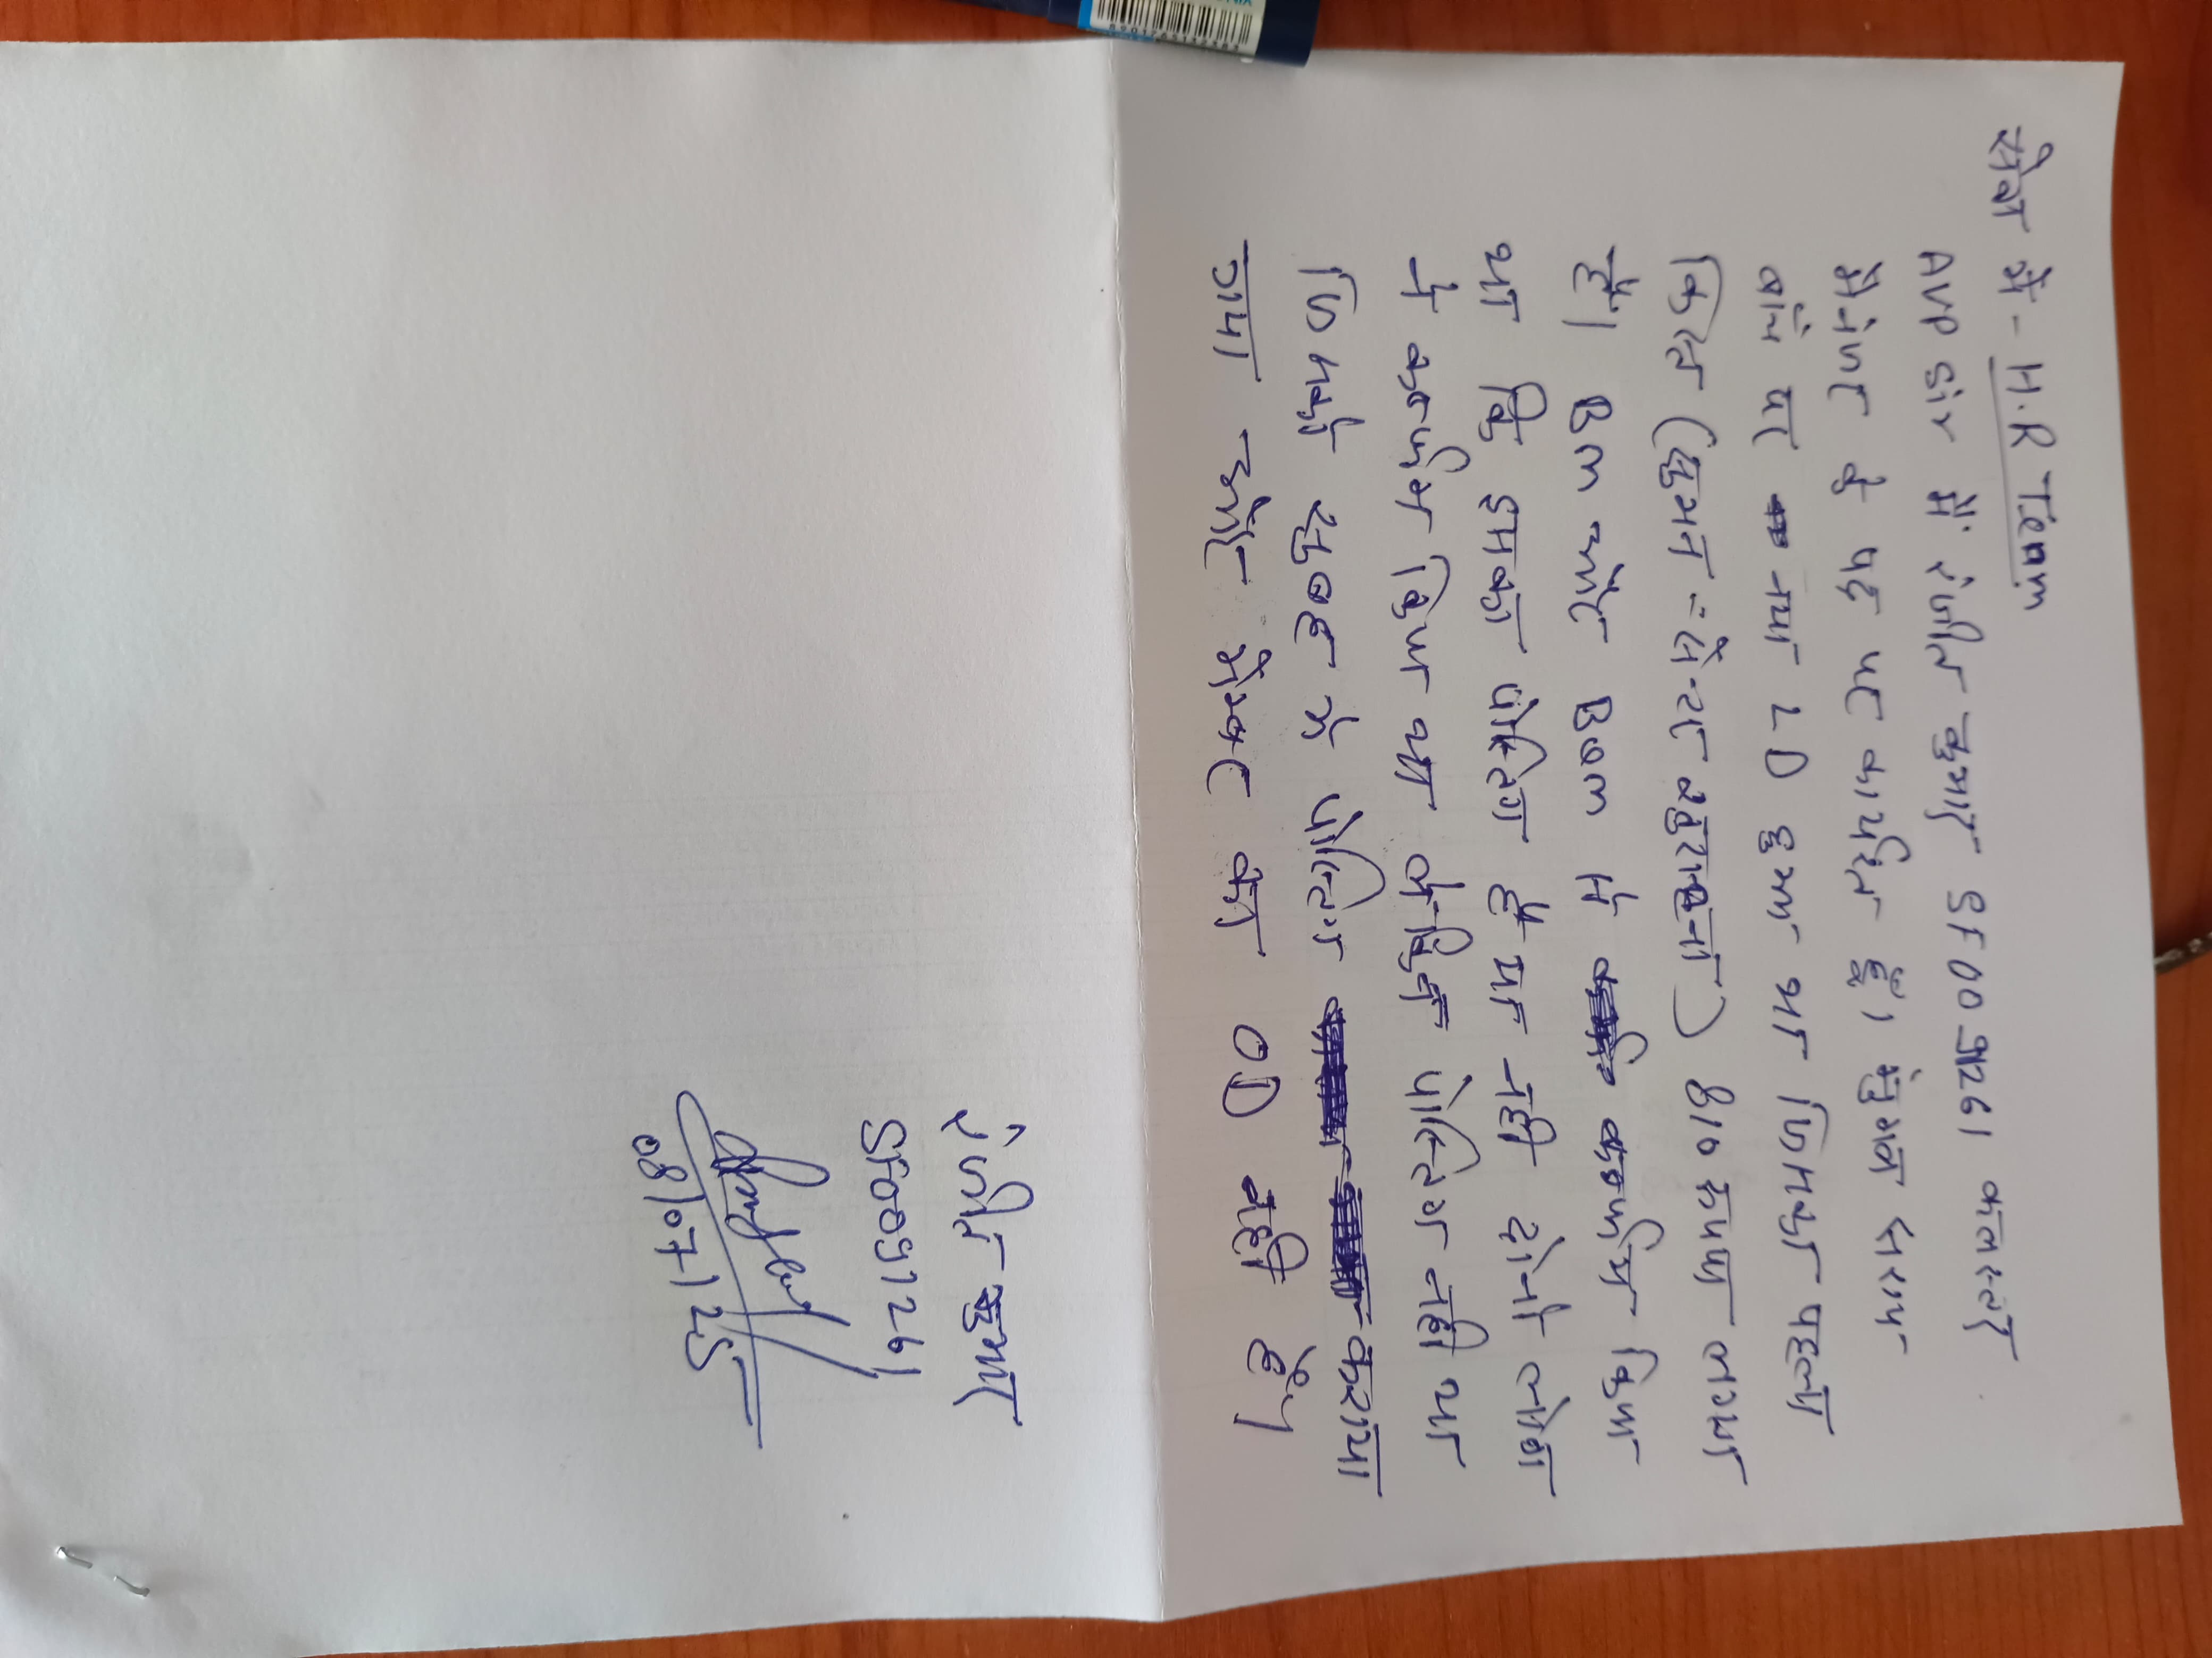 सेवा में - H.R Team
AVP Sir मैं रंजीत कुमार SF0091261 कलस्टर
मैनेजर के पद पर कार्यरत हूँ। सुमन सरया
ब्रांच पर नया LD हुआ था जिसका पहला
किस्त (सुमन - सेन्टर ) 810 रूपया लगभग
है। BM और BQM से कन्फर्म किया
था कि इसका पोस्टिंग हुआ नही दोनो लोग
ने कन्फर्म किया था लेकिन पोस्टिंग नही था
जिसको सुबह में पोस्टिंग कराया
गया और मेम्बर का OD नही है।
रंजीत कुमार
SF0091261
08/07/25